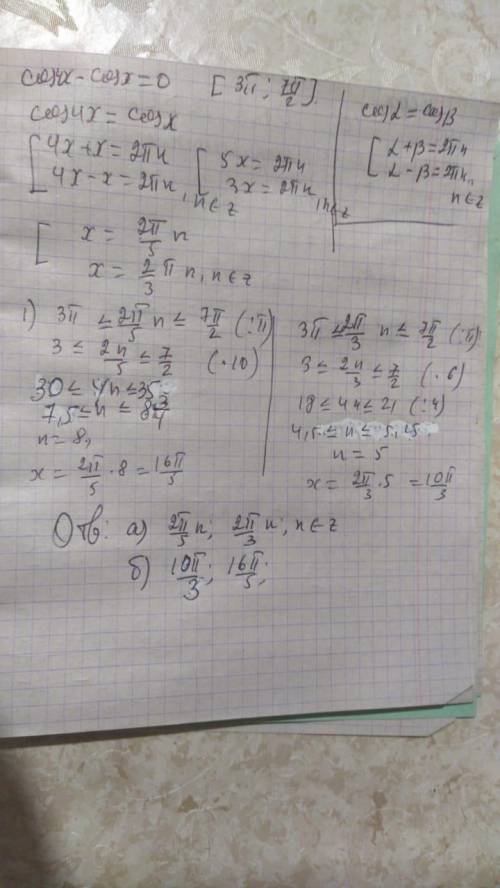 cos4x - cosx = 0 [3π; 7π/2].
cos4x = cosx
[4x+x = 2πn
4x-x = 2πn, n∈z
[5x = 2πn
3x = 2πn, n∈z
cosα = cosβ
[α+β = 2πn
α-β = 2πn,
n∈z
[x = 2π/5 n
x = 2/3 πn, n∈z
1) 3π ≤ 2π/5 n ≤ 7π/2 (:π)
3 ≤ 2n/5 ≤ 7/2 (·10)
30 ≤ 4n ≤ 35
7,5 ≤ n ≤ 8 3/4
n = 8,
x = 2π/5 · 8 = 16π/5
3π ≤ 2π/3 n ≤ 7π/2 (:π)
3 ≤ 2n/3 ≤ 7/2 (·6)
18 ≤ 4n ≤ 21 (:4)
4,5 ≤ n ≤ 5,25
n = 5
x = 2π/3 · 5 = 10π/3
Отв: а) 2π/5 n; 2π/3 n, n∈z
б) 10π/3; 16π/5;